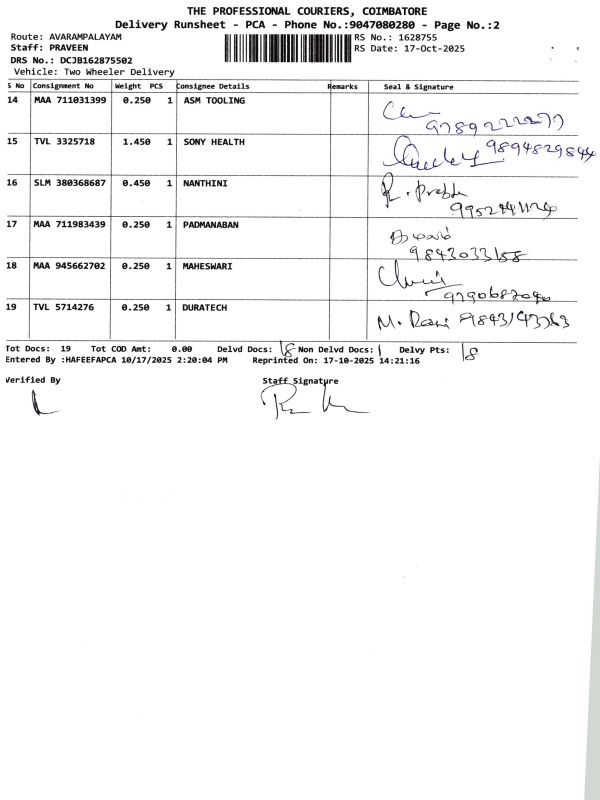 THE PROFESSIONAL COURIERS, COIMBATORE
Delivery Runsheet - PCA - Phone No.:9047080280 - Page No.:2
Route: AVARAMPALAYAM RS No.: 1628755
Staff: PRAVEEN RS Date: 17-Oct-2025
DRS No.: DCJB162875502
Vehicle: Two Wheeler Delivery
S No Consignment No Weight PCS Consignee Details Remarks Seal & Signature
14 MAA 711031399 0.250 1 ASM TOOLING
15 TVL 3325718 1.450 1 SONY HEALTH 9894829844
16 SLM 380368687 0.450 1 NANTHINI R. Prabha
17 MAA 711983439 0.250 1 PADMANABAN
9843033188
18 MAA 945662702 0.250 1 MAHESWARI
19 TVL 5714276 0.250 1 DURATECH M. Rani
Tot Docs: 19 Tot COD Amt: 0.00 Delvd Docs: 18 Non Delvd Docs: 1 Delvy Pts: 18
Entered By :HAFEEFAPCA 10/17/2025 2:20:04 PM Reprinted On: 17-10-2025 14:21:16
Verified By Staff Signature